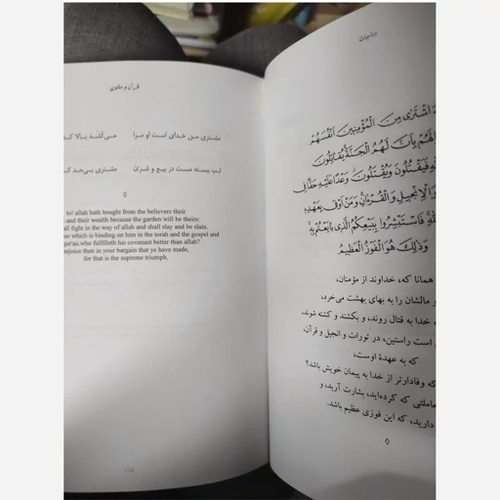 مناجات
اشْتَرَى مِنَ الْمُؤْمِنِينَ أَنْفُسَهُمْ
بِأَنَّ لَهُمُ الْجَنَّةَ يُقَاتِلُونَ
فَيَقْتُلُونَ وَيُقْتَلُونَ وَعْدًا عَلَيْهِ حَقًّا فِي
وَالْإِنْجِيلِ وَالْقُرْآنِ وَمَنْ أَوْفَى بِعَهْدِهِ
فَاسْتَبْشِرُوا بِبَيْعِكُمُ الَّذِي بَايَعْتُمْ بِهِ
وَذَلِكَ هُوَ الْفَوْزُ الْعَظِيمُ
همانا که، خداوند از مؤمنان،
و مالشان را به بهای بهشت می‌خرد،
خدا به قتال روند، و بکشند و کشته شوند،
است راستین، در تورات و انجیل و قرآن،
که به عهدهٔ اوست،
که وفادارتر از خدا به پیمان خویش باشد؟
که کرده‌اید، بشارت آرید، و
دارید، که این فوزی عظیم باشد.
قرآن و مثنوی
مشتری من خدای است او مرا می‌کشد بالا که
لب ببسته مست در بیع و شری مشتری بی‌حد که
lo! allah hath bought from the believers their
and their wealth because the garden will be theirs:
all fight in the way of allah and shall slay and be slain.
se which is binding on him in the torah and the gospel and
qur'an. who fulfilleth his covenant better than allah?
rejoice then in your bargain that ye have made,
for that is the supreme triumph.